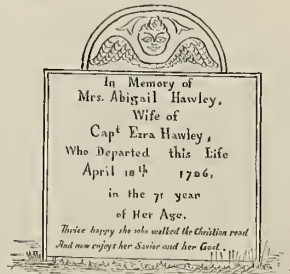 In Memory of
Mrs. Abigail Hawley,
Wife of
Capt Ezra Hawley,
Who Departed this Life
April 18th 1786,
in the 71 year
of Her Age.
Thrice happy she who walked the Christian road
And now enjoys her Savior and her God.